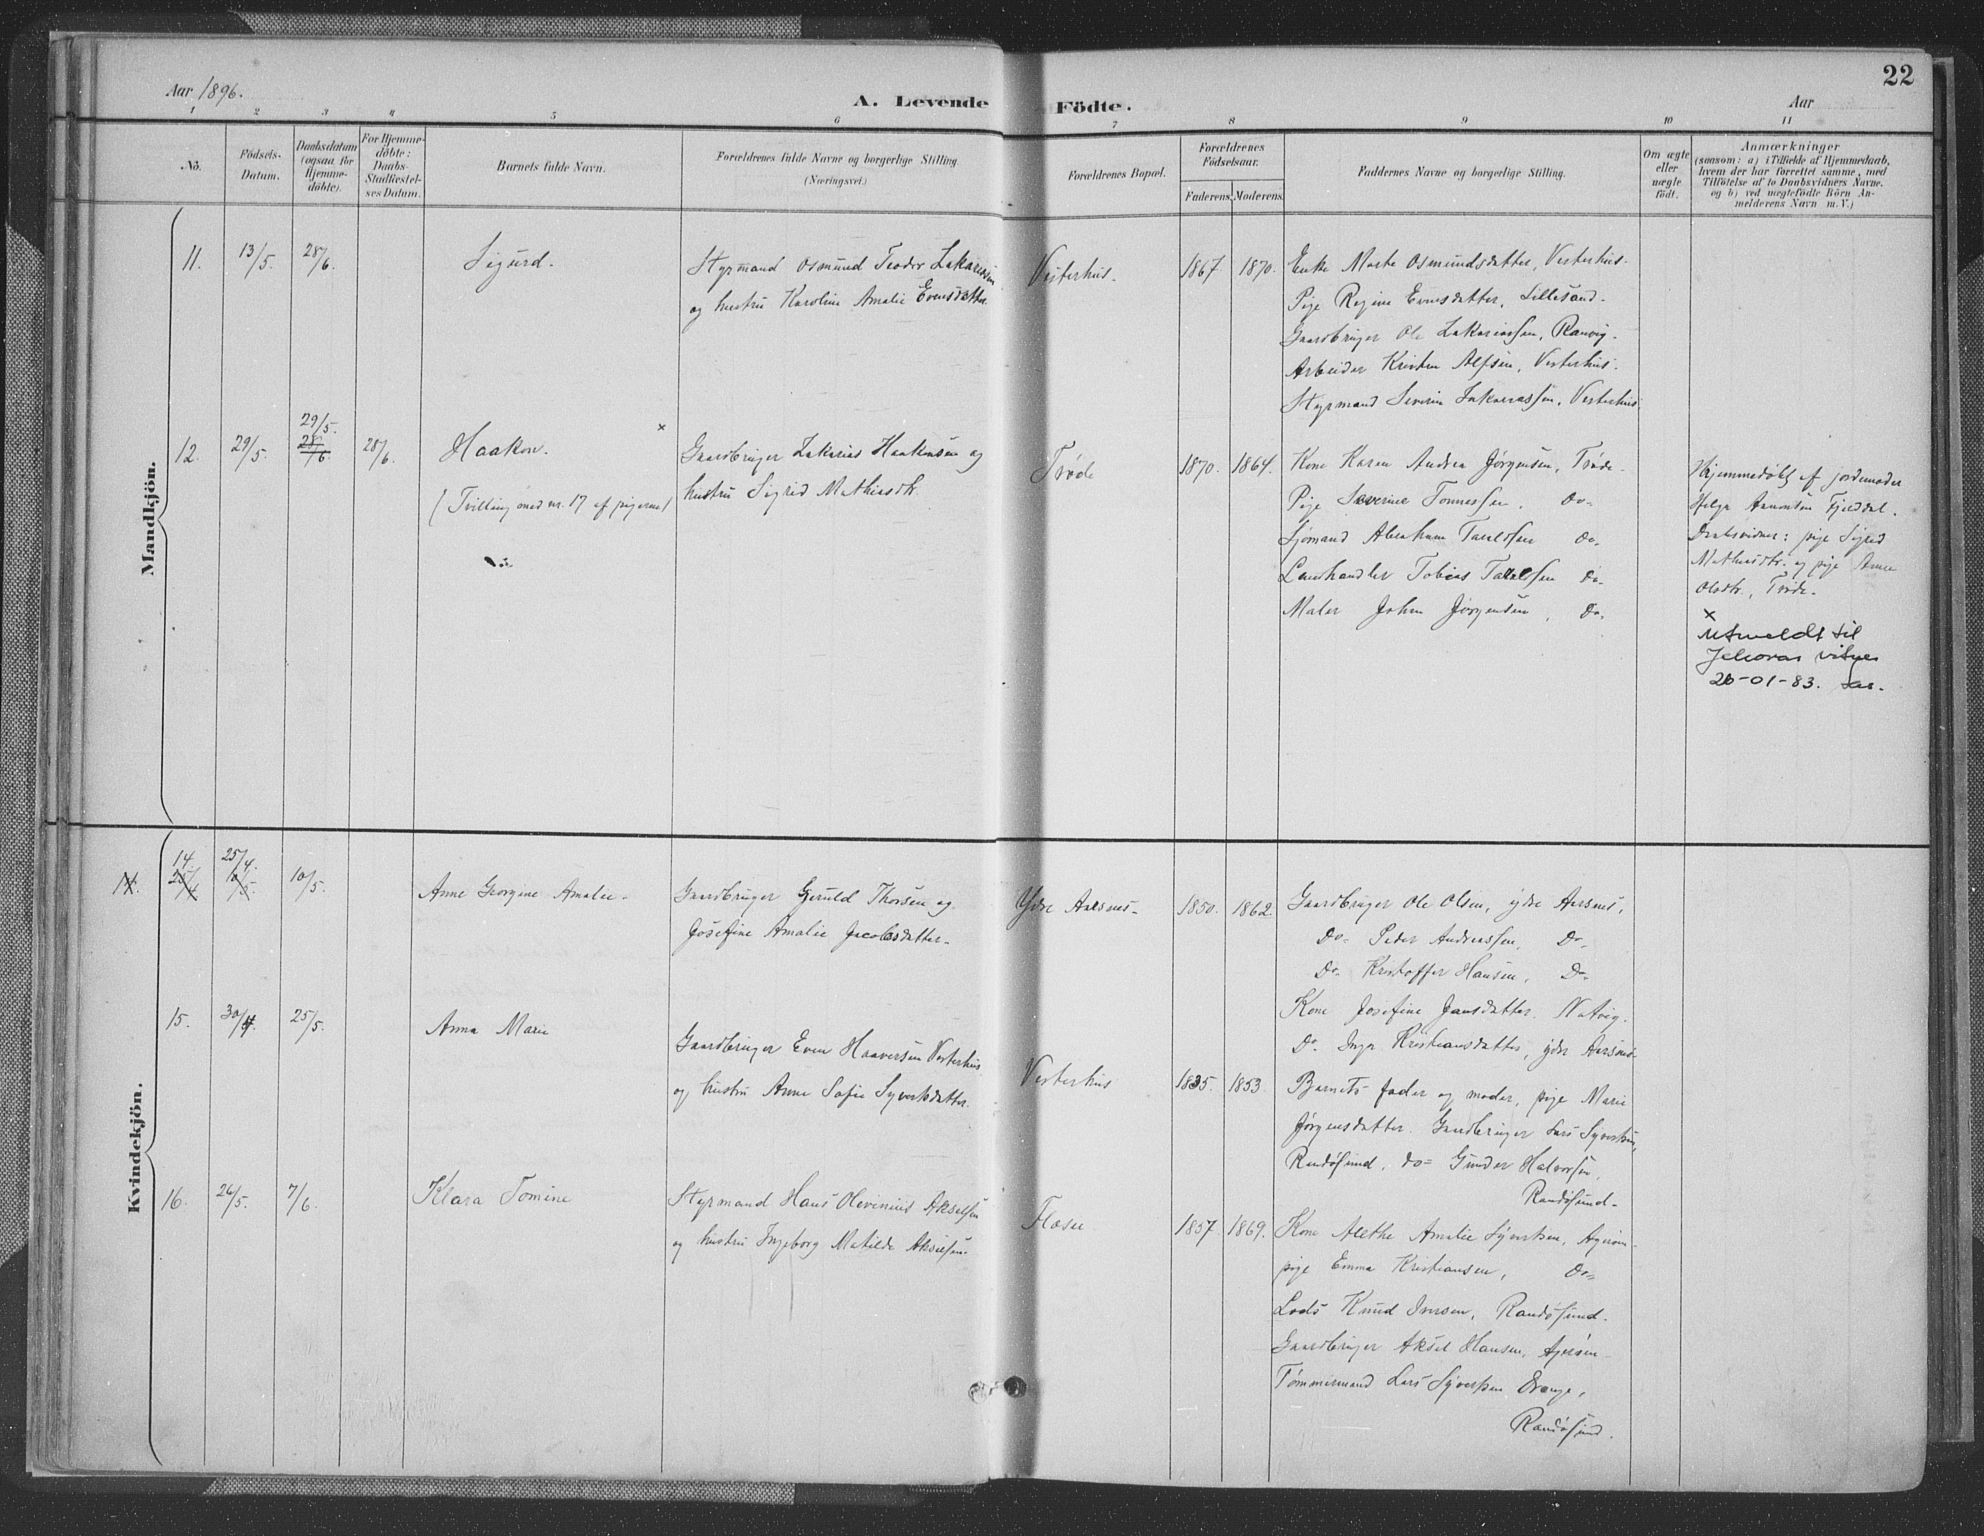 22
Aar 1896.
A. Levende Födte.
Aar
1 2 3 4 5 6 7 8 9 10 11
No.
Födsels-
Datum.
Daabsdatum
(ogsaa for
Hjemme-
döbte).
For Hjemme-
döbte:
Daabs-
Stadfæstel-
ses Datum.
Barnets fulde Navn.
Forældrenes fulde Navne og borgerlige Stilling
(Næringsvei.)
Forældrenes Bopæl.
Forældrenes
Födselsaar.
Faderens. Moderens.
Faddernes Navne og borgerlige Stilling.
Om ægte
eller
uægte
födt.
Anmærkninger
(saasom: a) i Tilfælde af Hjemmedaab,
hvem der har forrettet samme, med
Tilföielse af to Daabsvidners Navne.
og b) ved uægtefödte Börn An-
melderens Navn m.V.)
Mandkjön.
11. 13/5. 28/6. Sigurd.
Styrmand Osmund Teodor Zakariassen
og hustru Karoline Amalie Evensdatter.
Vesterhus. 1867 1870.
Enke Marte Osmundsdatter, Vesterhus.
Pige Regine Evensdatter, Lillesand.
Gaardbruger Ole Zakariassen, Ranvig.
Arbeider Kristen Alfsen, Vesterhus.
Styrmand Severin Zakariassen, Vesterhus.
12. 29/5. 29/5. 28/6 28/6. Haakon. ×
(Tvilling med nr. 17 af pigerne)
Gaardbruger Zakarias Haakensen og
hustru Sigrid Mathiasdtr.
Trøde 1870. 1864.
Kone Karen Andrea Jørgensen, Trøde.
Pige Severine Tonnessen, Do-
Sjømand Abraham Tarelssen Do-
Landhandler Tobias Tarelssen Do-
Maler Johan Jørgensen, Do-
Hjemmedøbt af jordemoder
Helga Aanonsen Fjelddal.
Daabsvidner: pige Sigrid
Mathiasdtr. og pige Anne
Olsdtr., Trøde.
×
Utmeldt til
Jehovas vitner
26-01-83.
Kvindekjön.
14. 14. 25/4 25/4. 10/5. 10/5. Anne Georgine Amalie.
Gaardbruger Gjeruld Thorsen og
Josefine Amalie Jacobsdatter.
Ydre Aarsnes. 1850. 1862.
Gaardbruger Ole Olsen, ydre Aarsnes,
Do- Peder Andreassen, Do-
Do- Kristoffer Hansen, Do-
Kone Josefine Jansdatter. Natvig.
Do. Inger Kristiansdatter, ydre Aarsnes
15. 30/4. 25/5. Anna Marie
Gaardbruger Even Haaversen Vesterhus
og hustru Anne Sofie Syvertsdatter.
Vesterhus 1835. 1853.
Barnets fader og moder, pige Marie
Jørgensdatter. Gaardbruger Lars Syvertsen,
Randøsund, do= Gunder Halvorsen,
Randøsund-
16. 26/5. 7/6. Klara Tomine
Styrmand Hans Olevinius Akselsen
og hustru Ingeborg Matilde Akselsen.
Flosee 1857. 1869.
Kone Alethe Amalie Syvertsen,
pige Emma Kristiansen, Do-
Lods Knud Iversen, Randøsund.
Gaardbruger Aksel Hansen,
Tømmermand Lars Syvertsen Drange,
Randøsund.